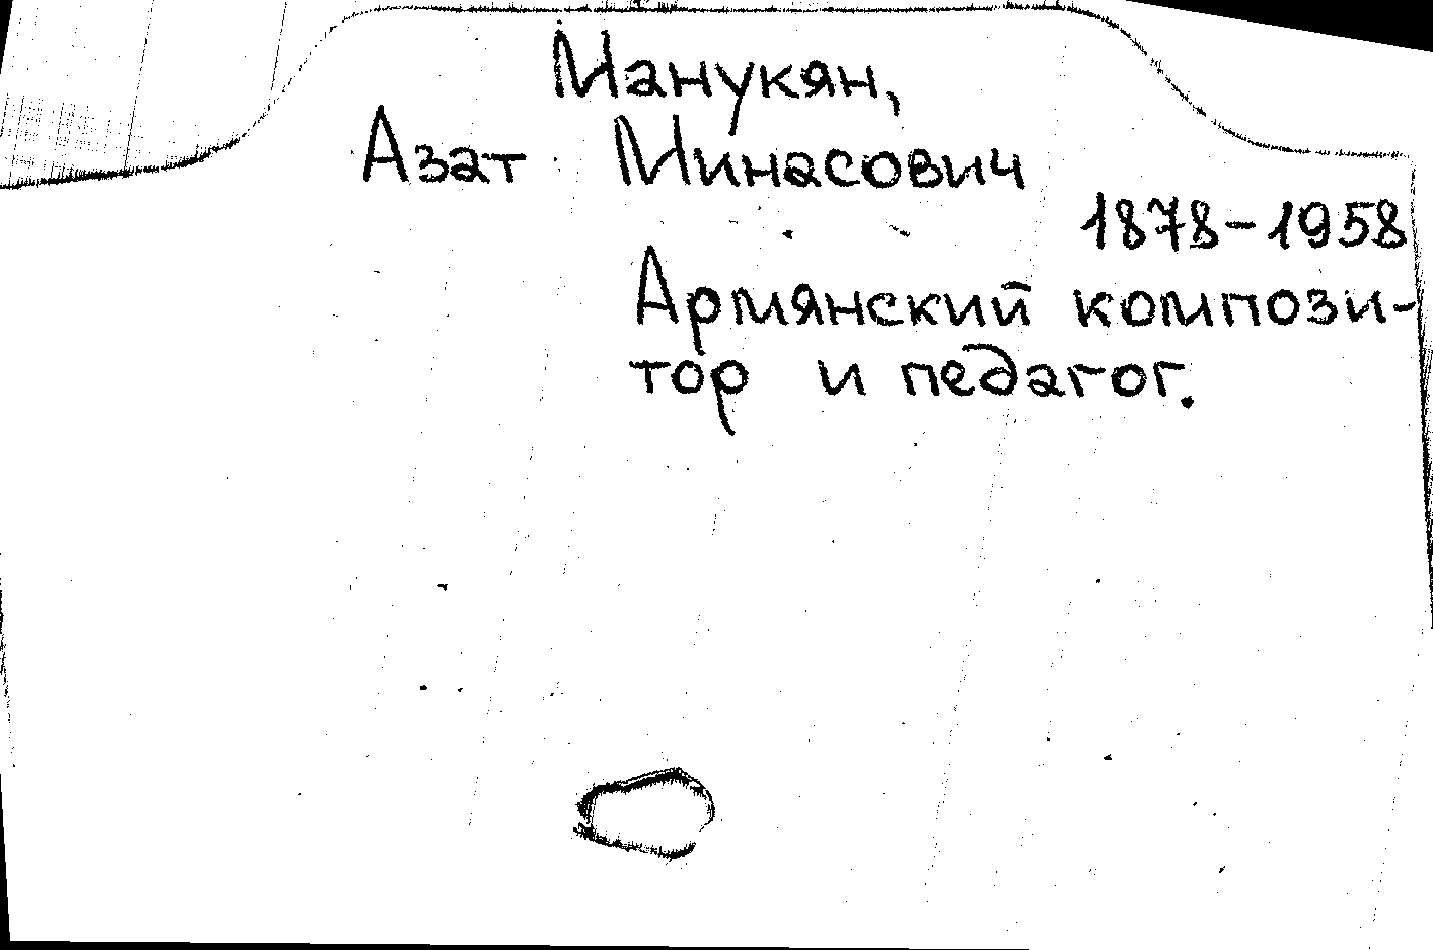 Манукян,
Азат Минасович
1878-1958
Армянский компози-
тор и педагог.